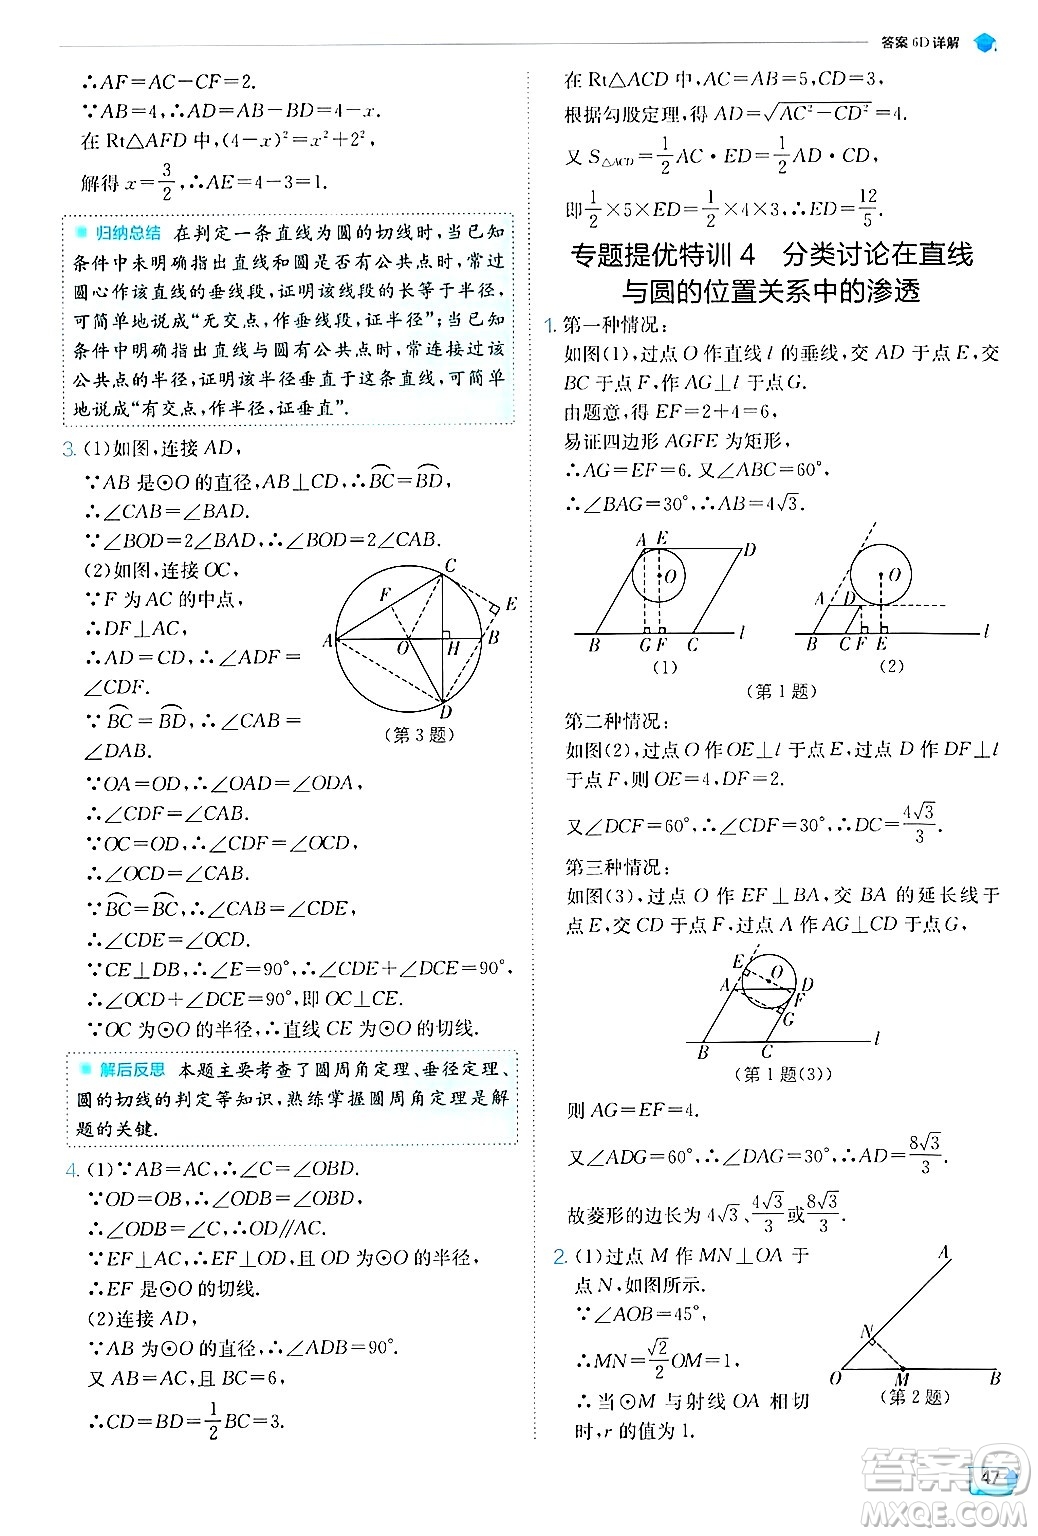 答案 6D 详解
∴AF=AC-CF=2.
∵AB=4,∴AD=AB-BD=4-x.
在 Rt△AFD 中,(4-x)²=x²+2²,
解得 x=3/2,∴AE=4-3=1.
归纳总结 在判定一条直线为圆的切线时,当已知
条件中未明确指出直线和圆是否有公共点时,常过
圆心作该直线的垂线段,证明该线段的长等于半径,
可简单地说成“无交点,作垂线段,证半径”;当已知
条件中明确指出直线与圆有公共点时,常连接过该
公共点的半径,证明该半径垂直于这条直线,可简单
地说成“有交点,作半径,证垂直”.
3. (1)如图,连接 AD,
∵AB 是⊙O 的直径,AB⊥CD,∴⌒BC=⌒BD,
∴∠CAB=∠BAD.
∵∠BOD=2∠BAD,∴∠BOD=2∠CAB.
(2)如图,连接 OC,
∵F 为 AC 的中点,
∴DF⊥AC,
∴AD=CD,∴∠ADF=
∠CDF.
∵⌒BC=⌒BD,∴∠CAB=
∠DAB.
A B C D E F O H
(第 3 题)
∵OA=OD,∴∠OAD=∠ODA,
∴∠CDF=∠CAB.
∵OC=OD,∴∠CDF=∠OCD,
∴∠OCD=∠CAB.
∵⌒BC=⌒BC,∴∠CAB=∠CDE,
∴∠CDE=∠OCD.
∵CE⊥DB,∴∠E=90°,∴∠CDE+∠DCE=90°,
∴∠OCD+∠DCE=90°,即 OC⊥CE.
∵OC 为⊙O 的半径,∴直线 CE 为⊙O 的切线.
解后反思 本题主要考查了圆周角定理、垂径定理、
圆的切线的判定等知识,熟练掌握圆周角定理是解
题的关键.
4. (1)∵AB=AC,∴∠C=∠OBD.
∵OD=OB,∴∠ODB=∠OBD,
∴∠ODB=∠C,∴OD∥AC.
∵EF⊥AC,∴EF⊥OD,且 OD 为⊙O 的半径,
∴EF 是⊙O 的切线.
(2)连接 AD,
∵AB 为⊙O 的直径,∴∠ADB=90°.
又 AB=AC,且 BC=6,
∴CD=BD=1/2BC=3.
在 Rt△ACD 中,AC=AB=5,CD=3,
根据勾股定理,得 AD=√(AC²-CD²)=4.
又 S△ACD=1/2AC·ED=1/2AD·CD,
即1/2×5×ED=1/2×4×3,∴ED=12/5.
专题提优特训 4 分类讨论在直线
与圆的位置关系中的渗透
1. 第一种情况:
如图(1),过点 O 作直线 l 的垂线,交 AD 于点 E,交
BC 于点 F,作 AG⊥l 于点 G.
由题意,得 EF=2+4=6,
易证四边形 AGFE 为矩形,
∴AG=EF=6. 又∠ABC=60°,
∴∠BAG=30°,∴AB=4√3.
A E D O B G F C l
(1)
A D O B C F E l
(2)
(第 1 题)
第二种情况:
如图(2),过点 O 作 OE⊥l 于点 E,过点 D 作 DF⊥l
于点 F,则 OE=4,DF=2.
又∠DCF=60°,∴∠CDF=30°,∴DC=4√3/3.
第三种情况:
如图(3),过点 O 作 EF⊥BA,交 BA 的延长线于
点 E,交 CD 于点 F,过点 A 作 AG⊥CD 于点 G,
E O A D F G B C l
(第 1 题(3))
则 AG=EF=4.
又∠ADG=60°,∴∠DAG=30°,∴AD=8√3/3.
故菱形的边长为 4√3、4√3/3或8√3/3.
2. (1)过点 M 作 MN⊥OA 于
点 N,如图所示.
∵∠AOB=45°,
∴MN=√2/2OM=1,
∴当⊙M 与射线 OA 相切
时,r 的值为 1.
A N O M B
(第 2 题)
47
答案圈
MXQE.COM